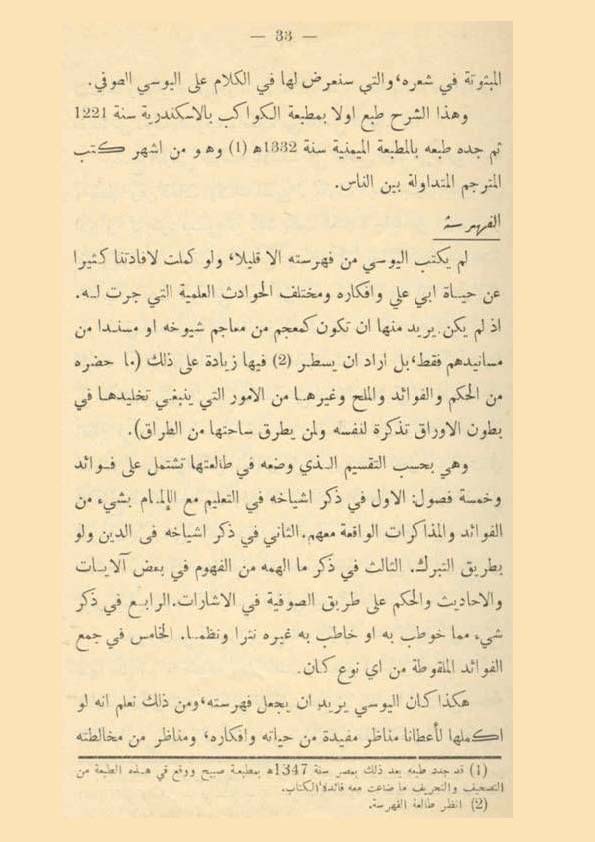 — 33 —
المبثوتة في شعره، والتي سنعرض لها في الكلام على اليوسي الصوفي.
وهذا الشرح طبع اولا بمطبعة الكواكب بالاسكندرية سنة 1221
ثم جدد طبعه بالمطبعة الميمنية سنة 1332ﻫ (1) وهو من اشهر كتب
المترجم المتداولة بين الناس.
الفهرسة
لم يكتب اليوسي من فهرسته الا قليلا، ولو كملت لافادتنا كثيرا
عن حياة ابي علي وافكاره ومختلف الحوادث العلمية التي جرت له.
اذ لم يكن يريد منها ان تكون كمعجم من معاجم شيوخه او مسندا من
مسانيدهم فقط، بل اراد ان يسطر (2) فيها زيادة على ذلك (ما حضره
من الحكم والفوائد والملح وغيرها من الامور التي ينبغي تخليدها في
بطون الاوراق تذكرة لنفسه ولمن يطرق ساحتها من الطراق).
وهي بحسب التقسيم الذي وضعه في طالعتها تشتمل على فوائد
وخمسة فصول: الاول في ذكر اشياخه في التعليم مع الإلمام بشيء من
الفوائد والمذاكرات الواقعة معهم. الثاني في ذكر اشياخه في الدين ولو
بطريق التبرك. الثالث في ذكر ما الهمه من الفهوم في بعض آلايات
والاحاديث والحكم على طريق الصوفية في الاشارات. الرابع في ذكر
شيء مما خوطب به او خاطب به غيره نترا ونظما. الخامس في جمع
الفوائد الملقوطة من اي نوع كان.
هكذا كان اليوسي يريد ان يجعل فهرسته، ومن ذلك نعلم انه لو
اكملها لأعطانا مناظر مفيدة من حياته وافكاره، ومناظر من مخالطته
(1) قد جدد طبعه بعد ذلك بمصر سنة 1347ﻫ بمطبعة صبيح ووقع في هذه الطبعة من
التصحيف والتحريف ما ضاعت معه فائدة الكتاب.
(2) انظر طالعة الفهرسة.